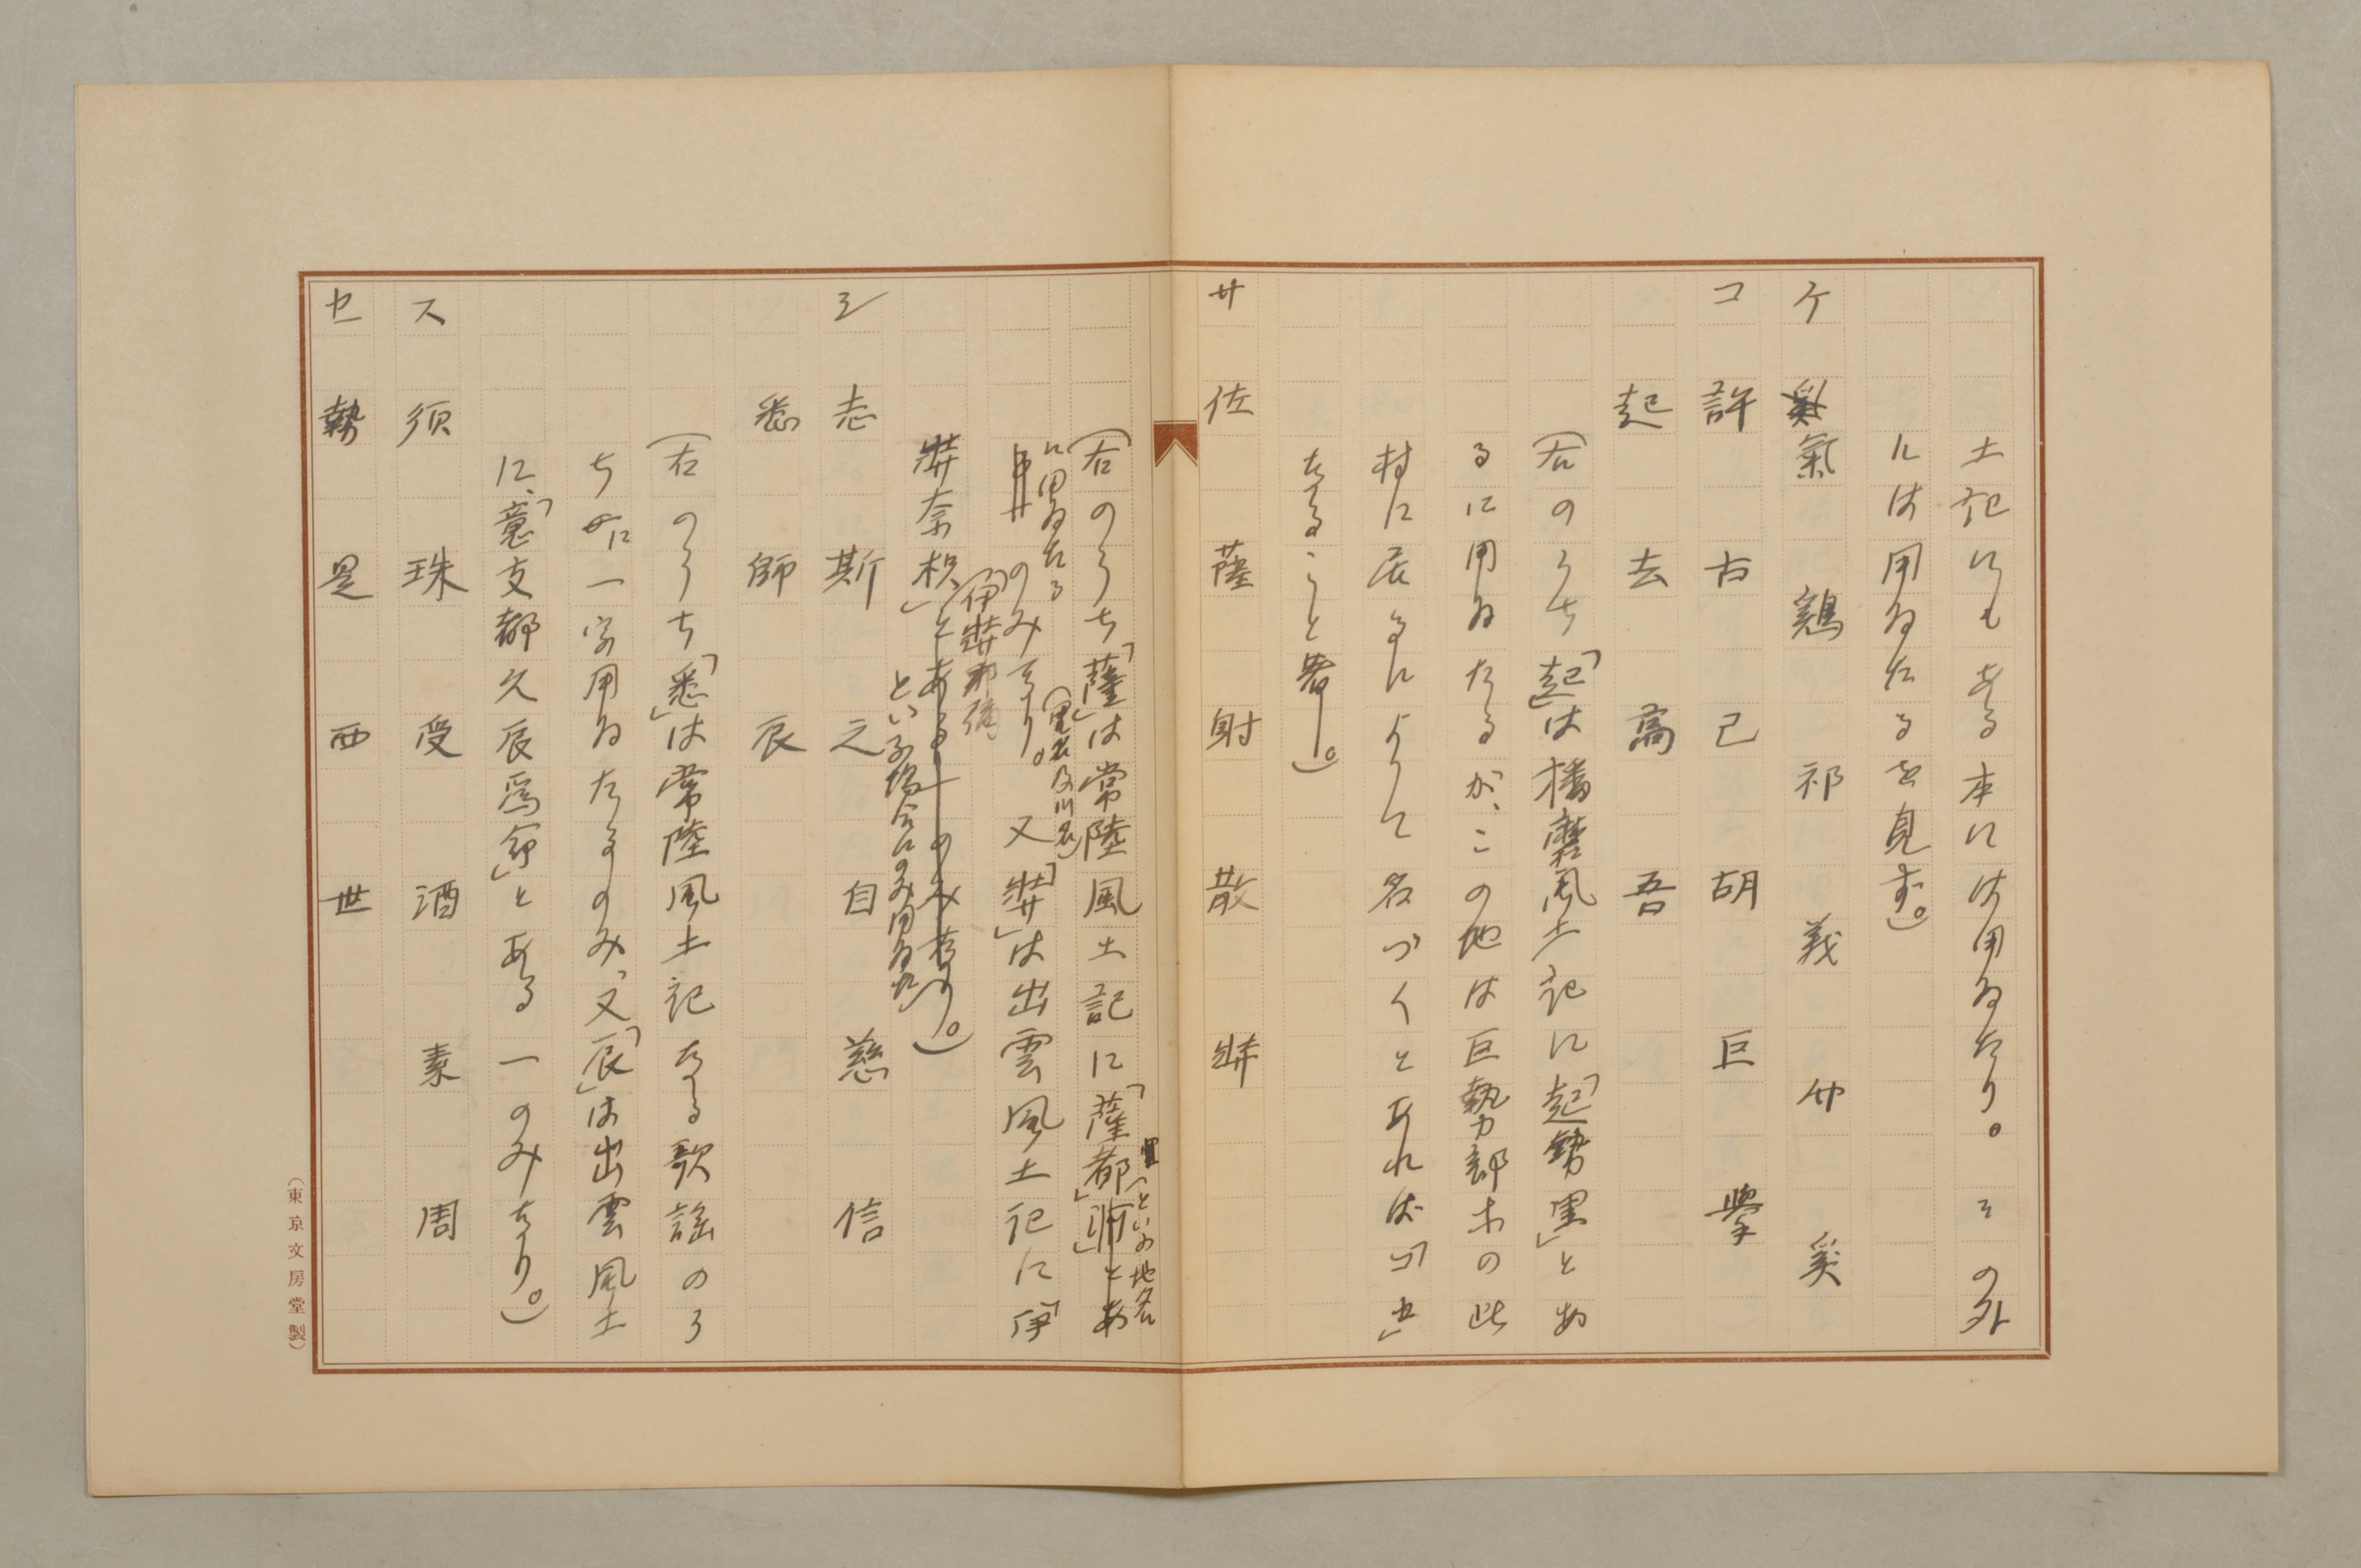 土記にもある本には用ゐたり。その外
には用ゐたるを見ず。）
ケ 氣 鷄 祁 義 奚
コ 許 古 己 胡 巨 擧
起 去 高 吾
（右のうち「起」は播磨風土記に「起勢里」とあ
るに用ゐたるが、この地は巨勢部木の此
村に居るによりて名づくとあれば「コ」
なること著し。）
サ 佐 薩 射 散
（右のうち「薩」は常陸風土記に「薩都」
といふ地名
（里名及川名）
に用ゐたる
のみなり。又「弉」は出雲風土記に「伊
弉奈枳」
（伊弉那彌）
といふ場合にのみ用ゐたり。）
シ 志 斯 之 自 慈 信
悉 師 辰
（右のうち「悉」は常陸風土記なる歌謡のう
ちに一字用ゐたるのみ、又「辰」は出雲風土
記に、「意支都久辰爲命」とある一のみなり。）
ス 須 珠 受 酒 素 周
セ 勢 是 西 世
（東京文房堂製）